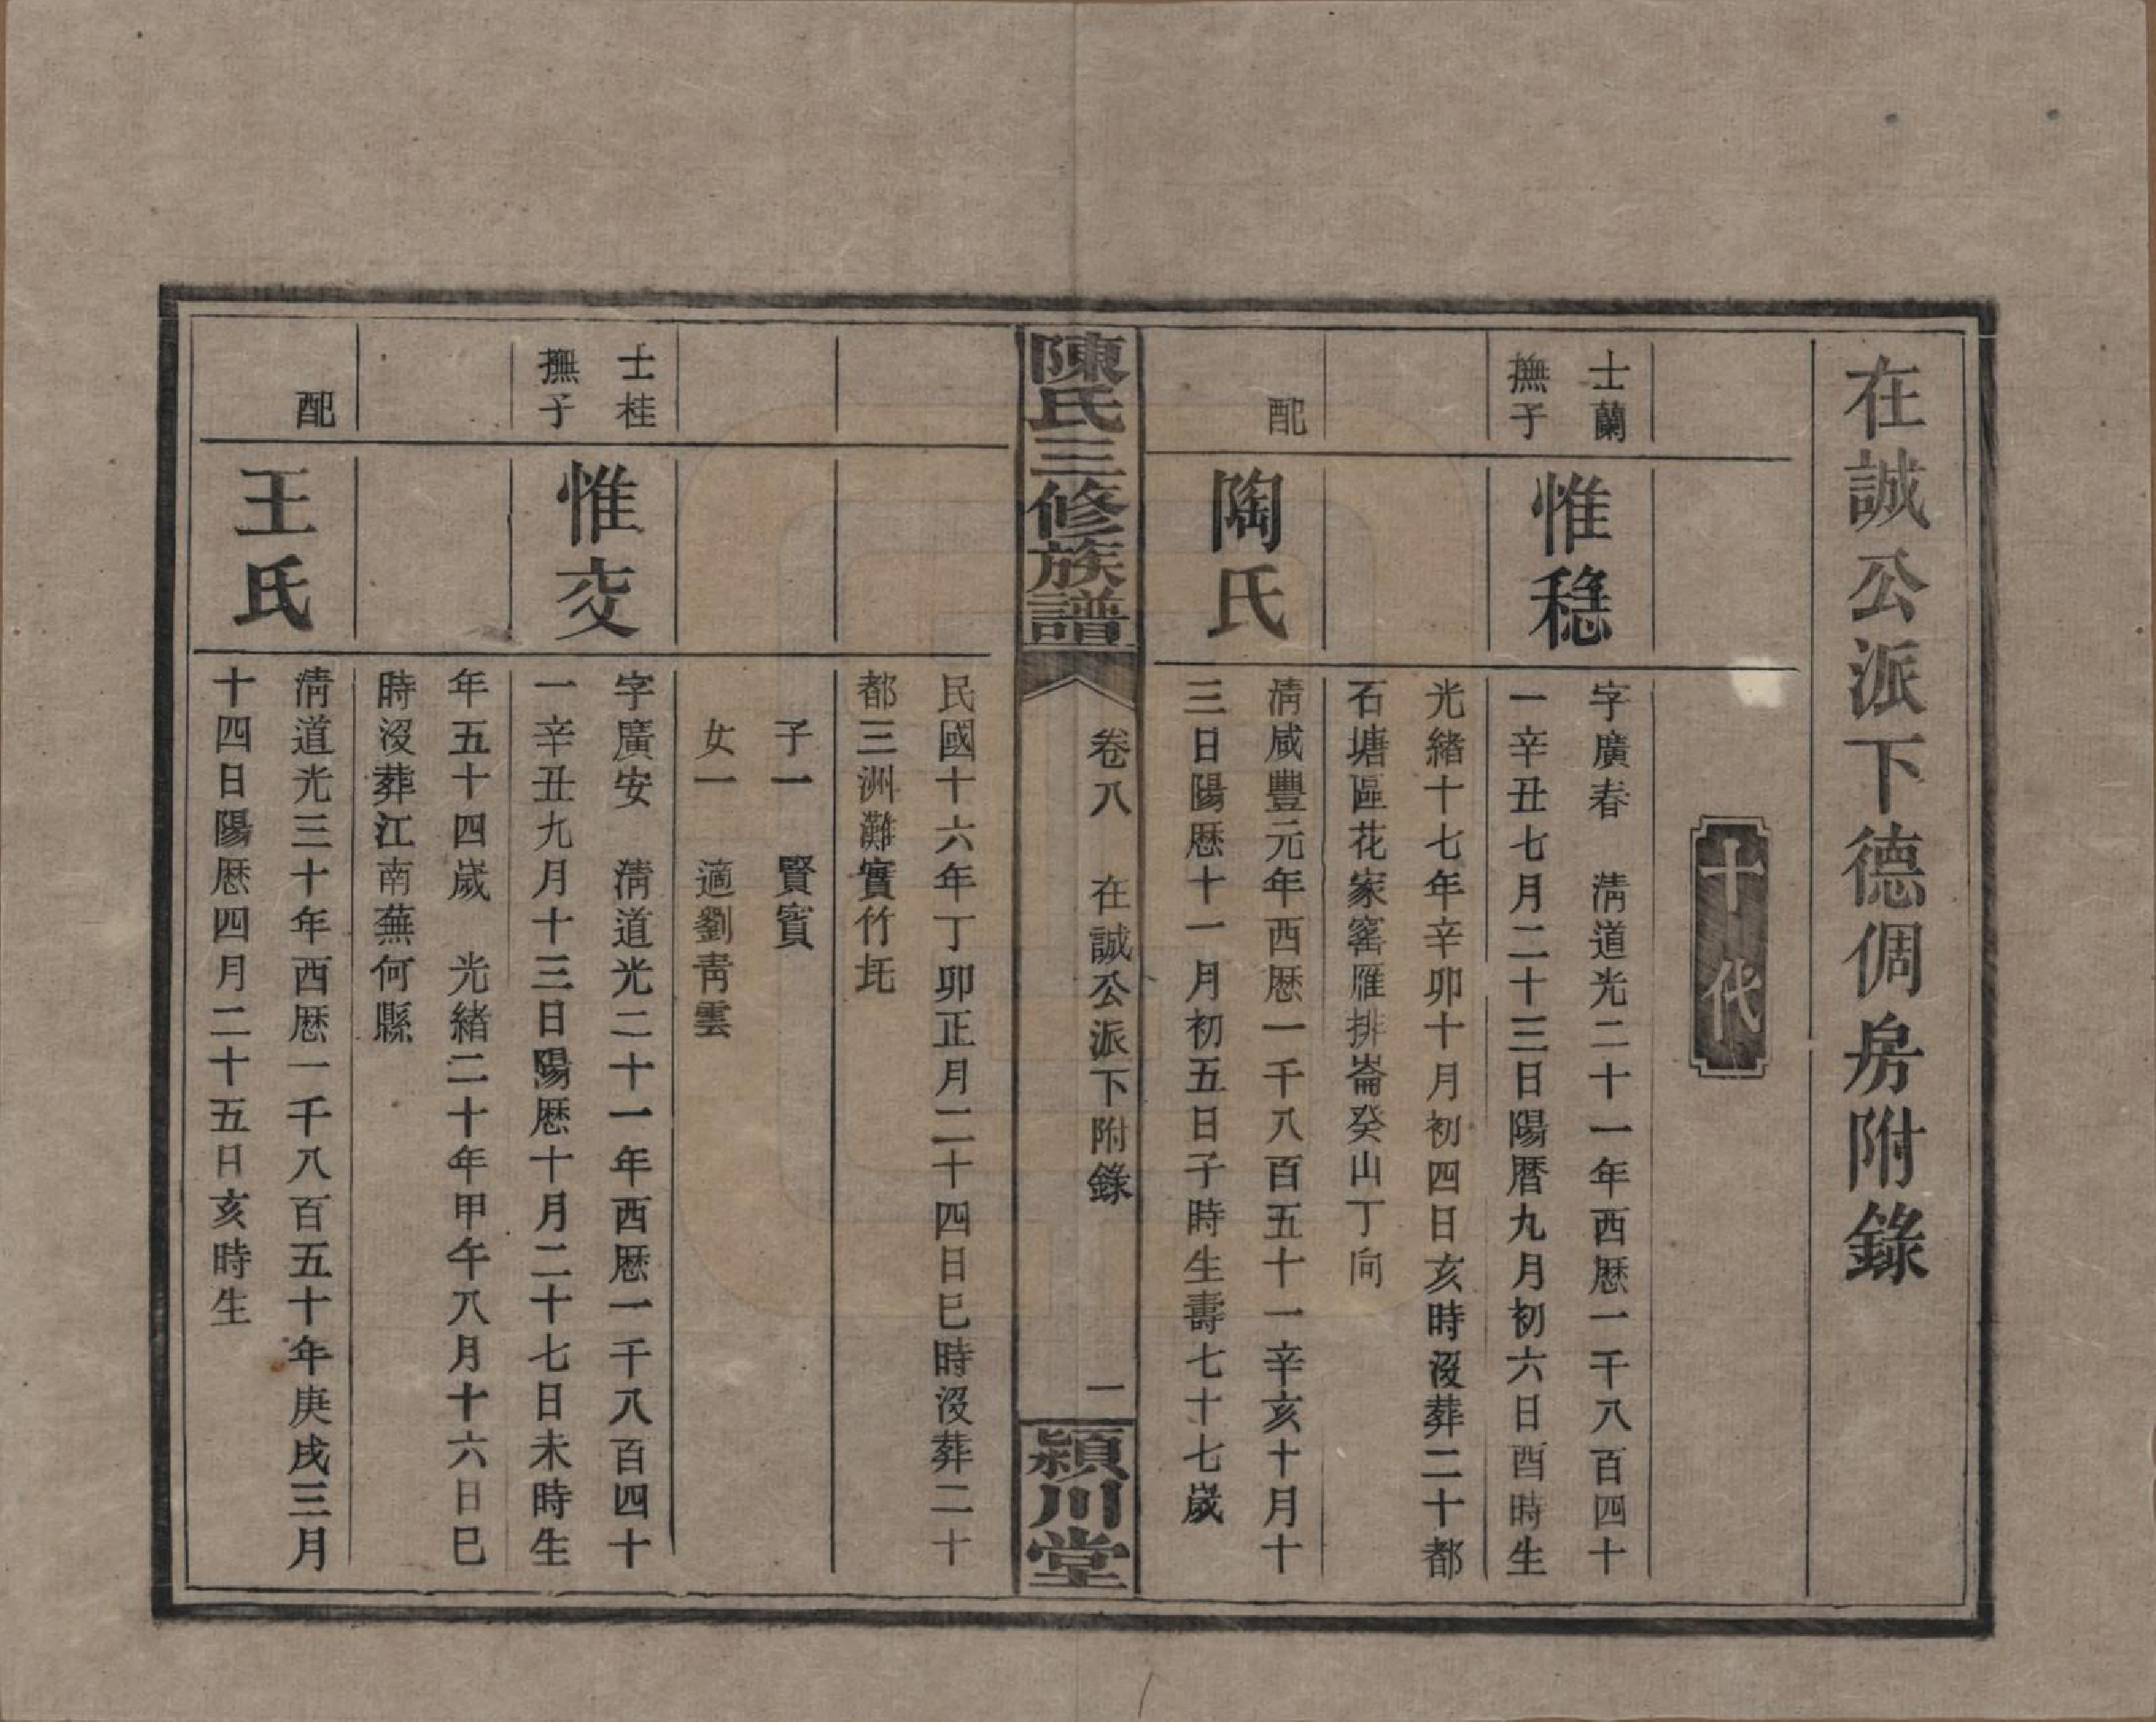 在誠公派下德倜房附錄
十代
士蘭
撫子
惟穩
字廣春　清道光二十一年西歷一千八百四十
一辛丑七月二十三日陽曆九月初六日酉時生
光緒十七年辛卯十月初四日亥時沒葬二十都
石塘區花家窰雁排崙癸山丁向
配
陶氏
清咸豐元年西歷一千八百五十一辛亥十月十
三日陽歷十一月初五日子時生壽七十七歲
陳氏三修族譜
卷八　在誠公派下附錄
一
潁川堂
民國十六年丁卯正月二十四日巳時沒葬二十
都三洲灘實竹坵
子一　賢賓
女一　適劉青雲
士桂
撫子
惟交
字廣安　清道光二十一年西歷一千八百四十
一辛丑九月十三日陽歷十月二十七日未時生
年五十四歲　光緒二十年甲午八月十六日巳
時沒葬江南蕪何縣
配
王氏
清道光三十年西歷一千八百五十年庚戌三月
十四日陽歷四月二十五日亥時生